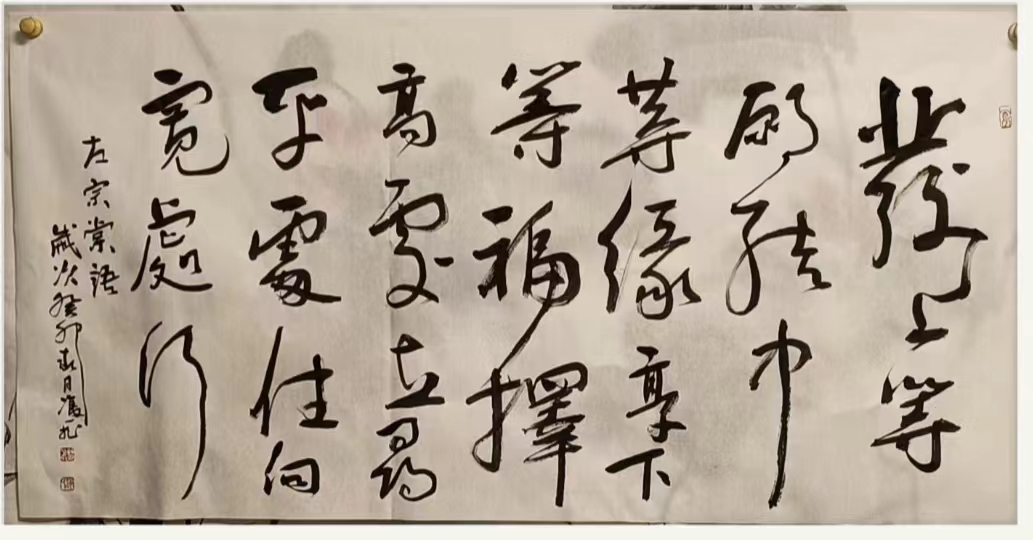 發上等
願結中
等緣享下
等福擇
高處立尋
平處住向
寬處行
左宗棠語
歲次癸卯春月